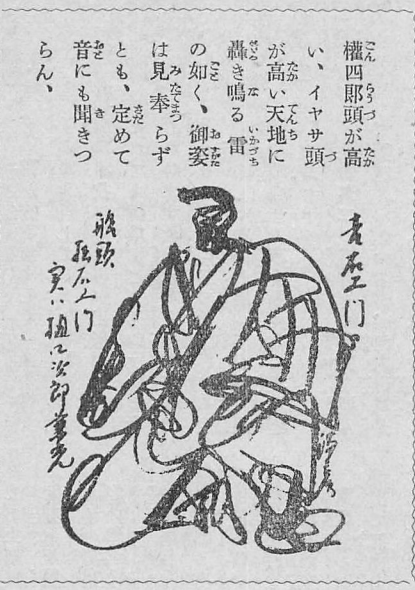 權四郎頭が高
い、イヤサ頭
が高い天地に
轟き鳴る雷
の如く、御姿
は見奉らず
とも、定めて
音にも聞きつ
らん、
吉右エ門
船頭
松右エ門
実ハ樋口次郎兼光